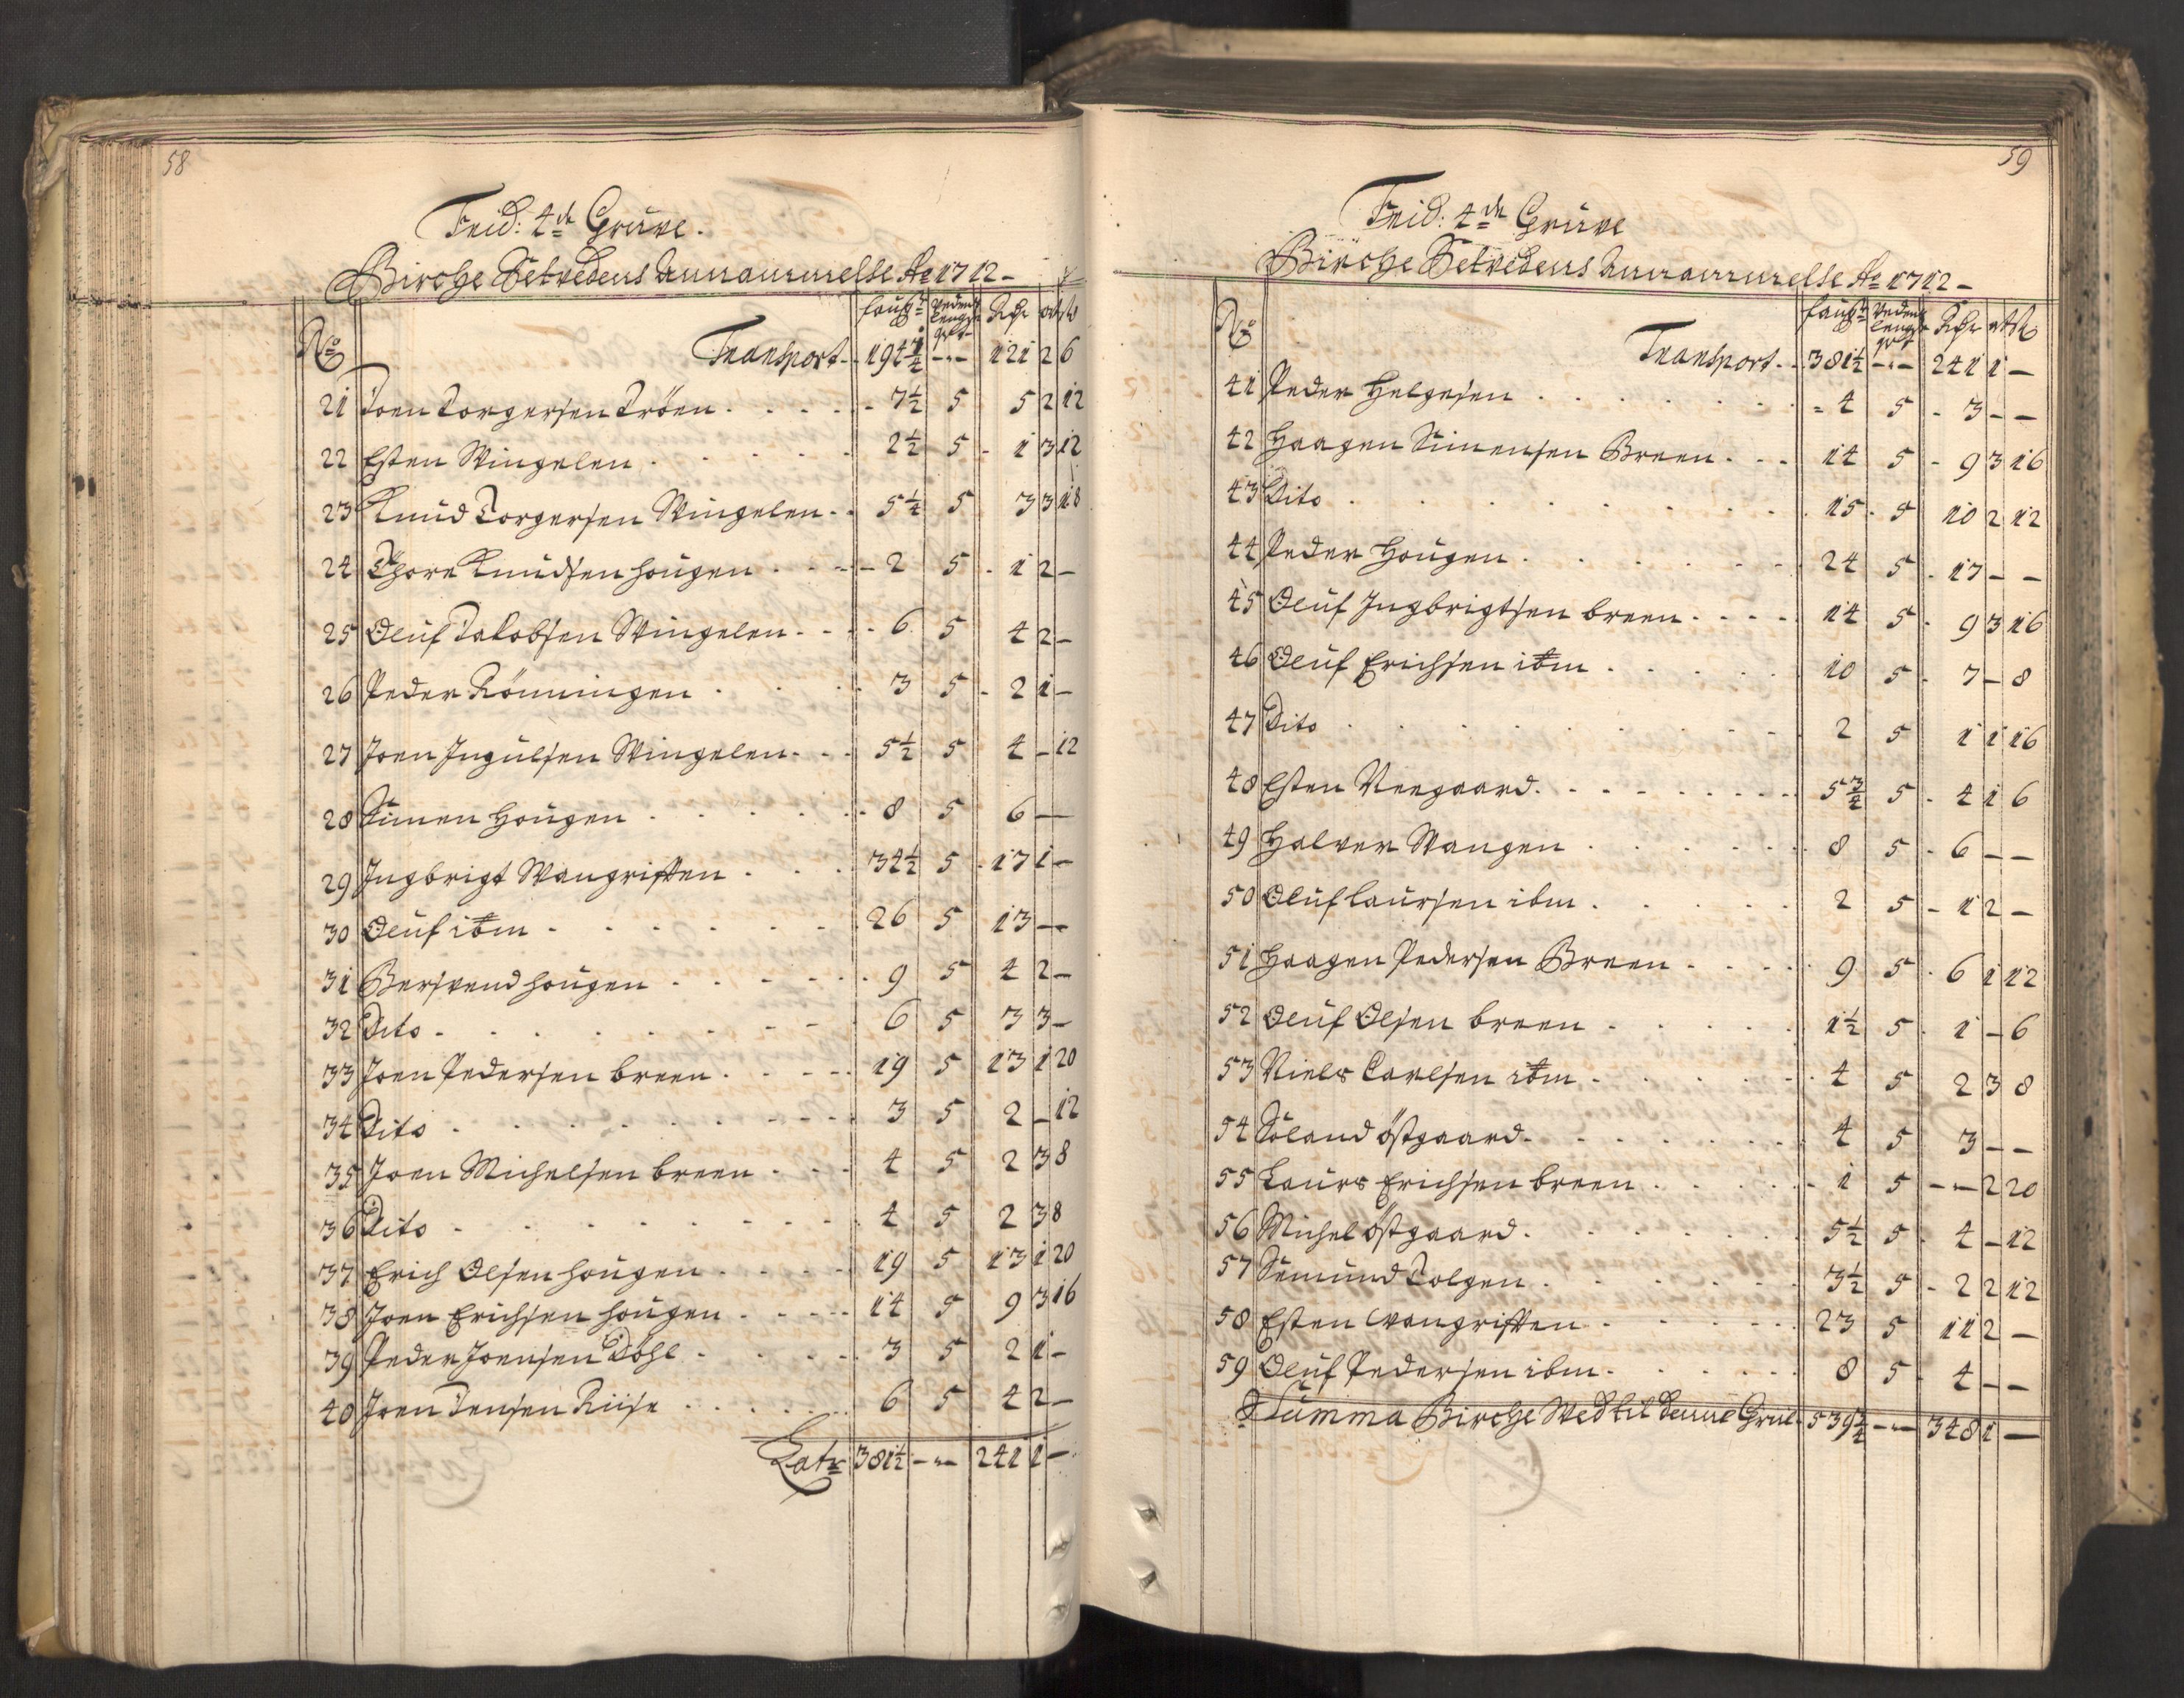 58
Frid: 4de Gruve.
Birche Setvedens Annammelse Ao 1712 -
No faufn vedens lengde qvtr Rdr ort s
Transport - 194 3/4 - - 121 2 6
21 Joen Torgersen Tröen 7 1/2 5 5 2 12
22 Esten Wingelen 2 1/2 5 1 3 12
23 Knud Torgersen Wingelen 5 1/4 5 3 3 18
24 Thore Knudsen Hougen 2 5 1 2 -
25 Oluf Jakobsen Wingelen 6 5 4 2 -
26 Peder Rönningen 3 5 2 1 -
27 Joen Ingulsen Wingelen 5 1/2 5 4 - 12
28 Simen Hougen 8 5 6 -
29 Ingbrigt Wangristen 34 1/2 5 17 1 -
30 Oluf ibm 26 5 13 - -
31 Bersvend hougen 9 5 4 2 -
32 Dito 6 5 3 3 -
33 Joen Pedersen breen 19 5 13 1 20
34 Dito 3 5 2 - 12
35 Joen Michelsen breen 4 5 2 3 8
36 Dito 4 5 2 3 8
37 Erich Olsen hougen 19 5 13 1 20
38 Joen Erichsen hougen 14 5 9 3 16
39 Peder Joensen Döhl 3 5 2 1 -
40 Joen Jensen Riise 6 5 4 2 -
Latr 381 1/2 - - 241 1 -
59
Frid: 4de Gruve
Birche Setvedens Annammelse Ao 1712 -
No faufn vedens lengde qvtr Rdr ort s
Transport - 381 1/2 - - 241 1 -
41 Peder Helgesen 4 5 3 - -
42 Haagen Simensen Breen 14 5 9 3 16
43 Dito 15 5 10 2 12
44 Peder Hougen 24 5 17 - -
45 Oluf Ingbrigtsen breen 14 5 9 3 16
46 Oluf Erichsen ibm 10 5 7 - 8
47 Dito 2 5 1 1 16
48 Esten Neegaard 5 3/4 5 4 1 6
49 Halver Wangen 8 5 6 - -
50 Oluf Laursen ibm 2 5 1 2 -
51 Haagen Pedersen Breen 9 5 6 1 12
52 Oluf Olsen breen 1 1/2 5 1 - 6
53 Niels Carlsen ibm 4 5 2 3 8
54 Söland östgaard 4 5 3 - -
55 Laurs Erichsen breen 1 5 - 2 20
56 Michel östgaard 5 1/2 5 4 - 12
57 Semund Tolgen 3 1/2 5 2 2 12
58 Esten Wangristen 23 5 11 2 -
59 Oluf Pedersen ibm 8 5 4 - -
Summa Birche Wed til denne Gruv 539 1/4 - - 348 1 -